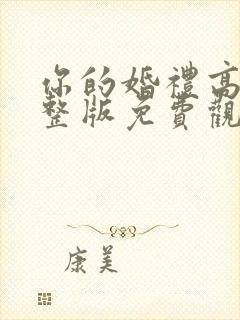 你的婚禮高
整版免費觀
康美